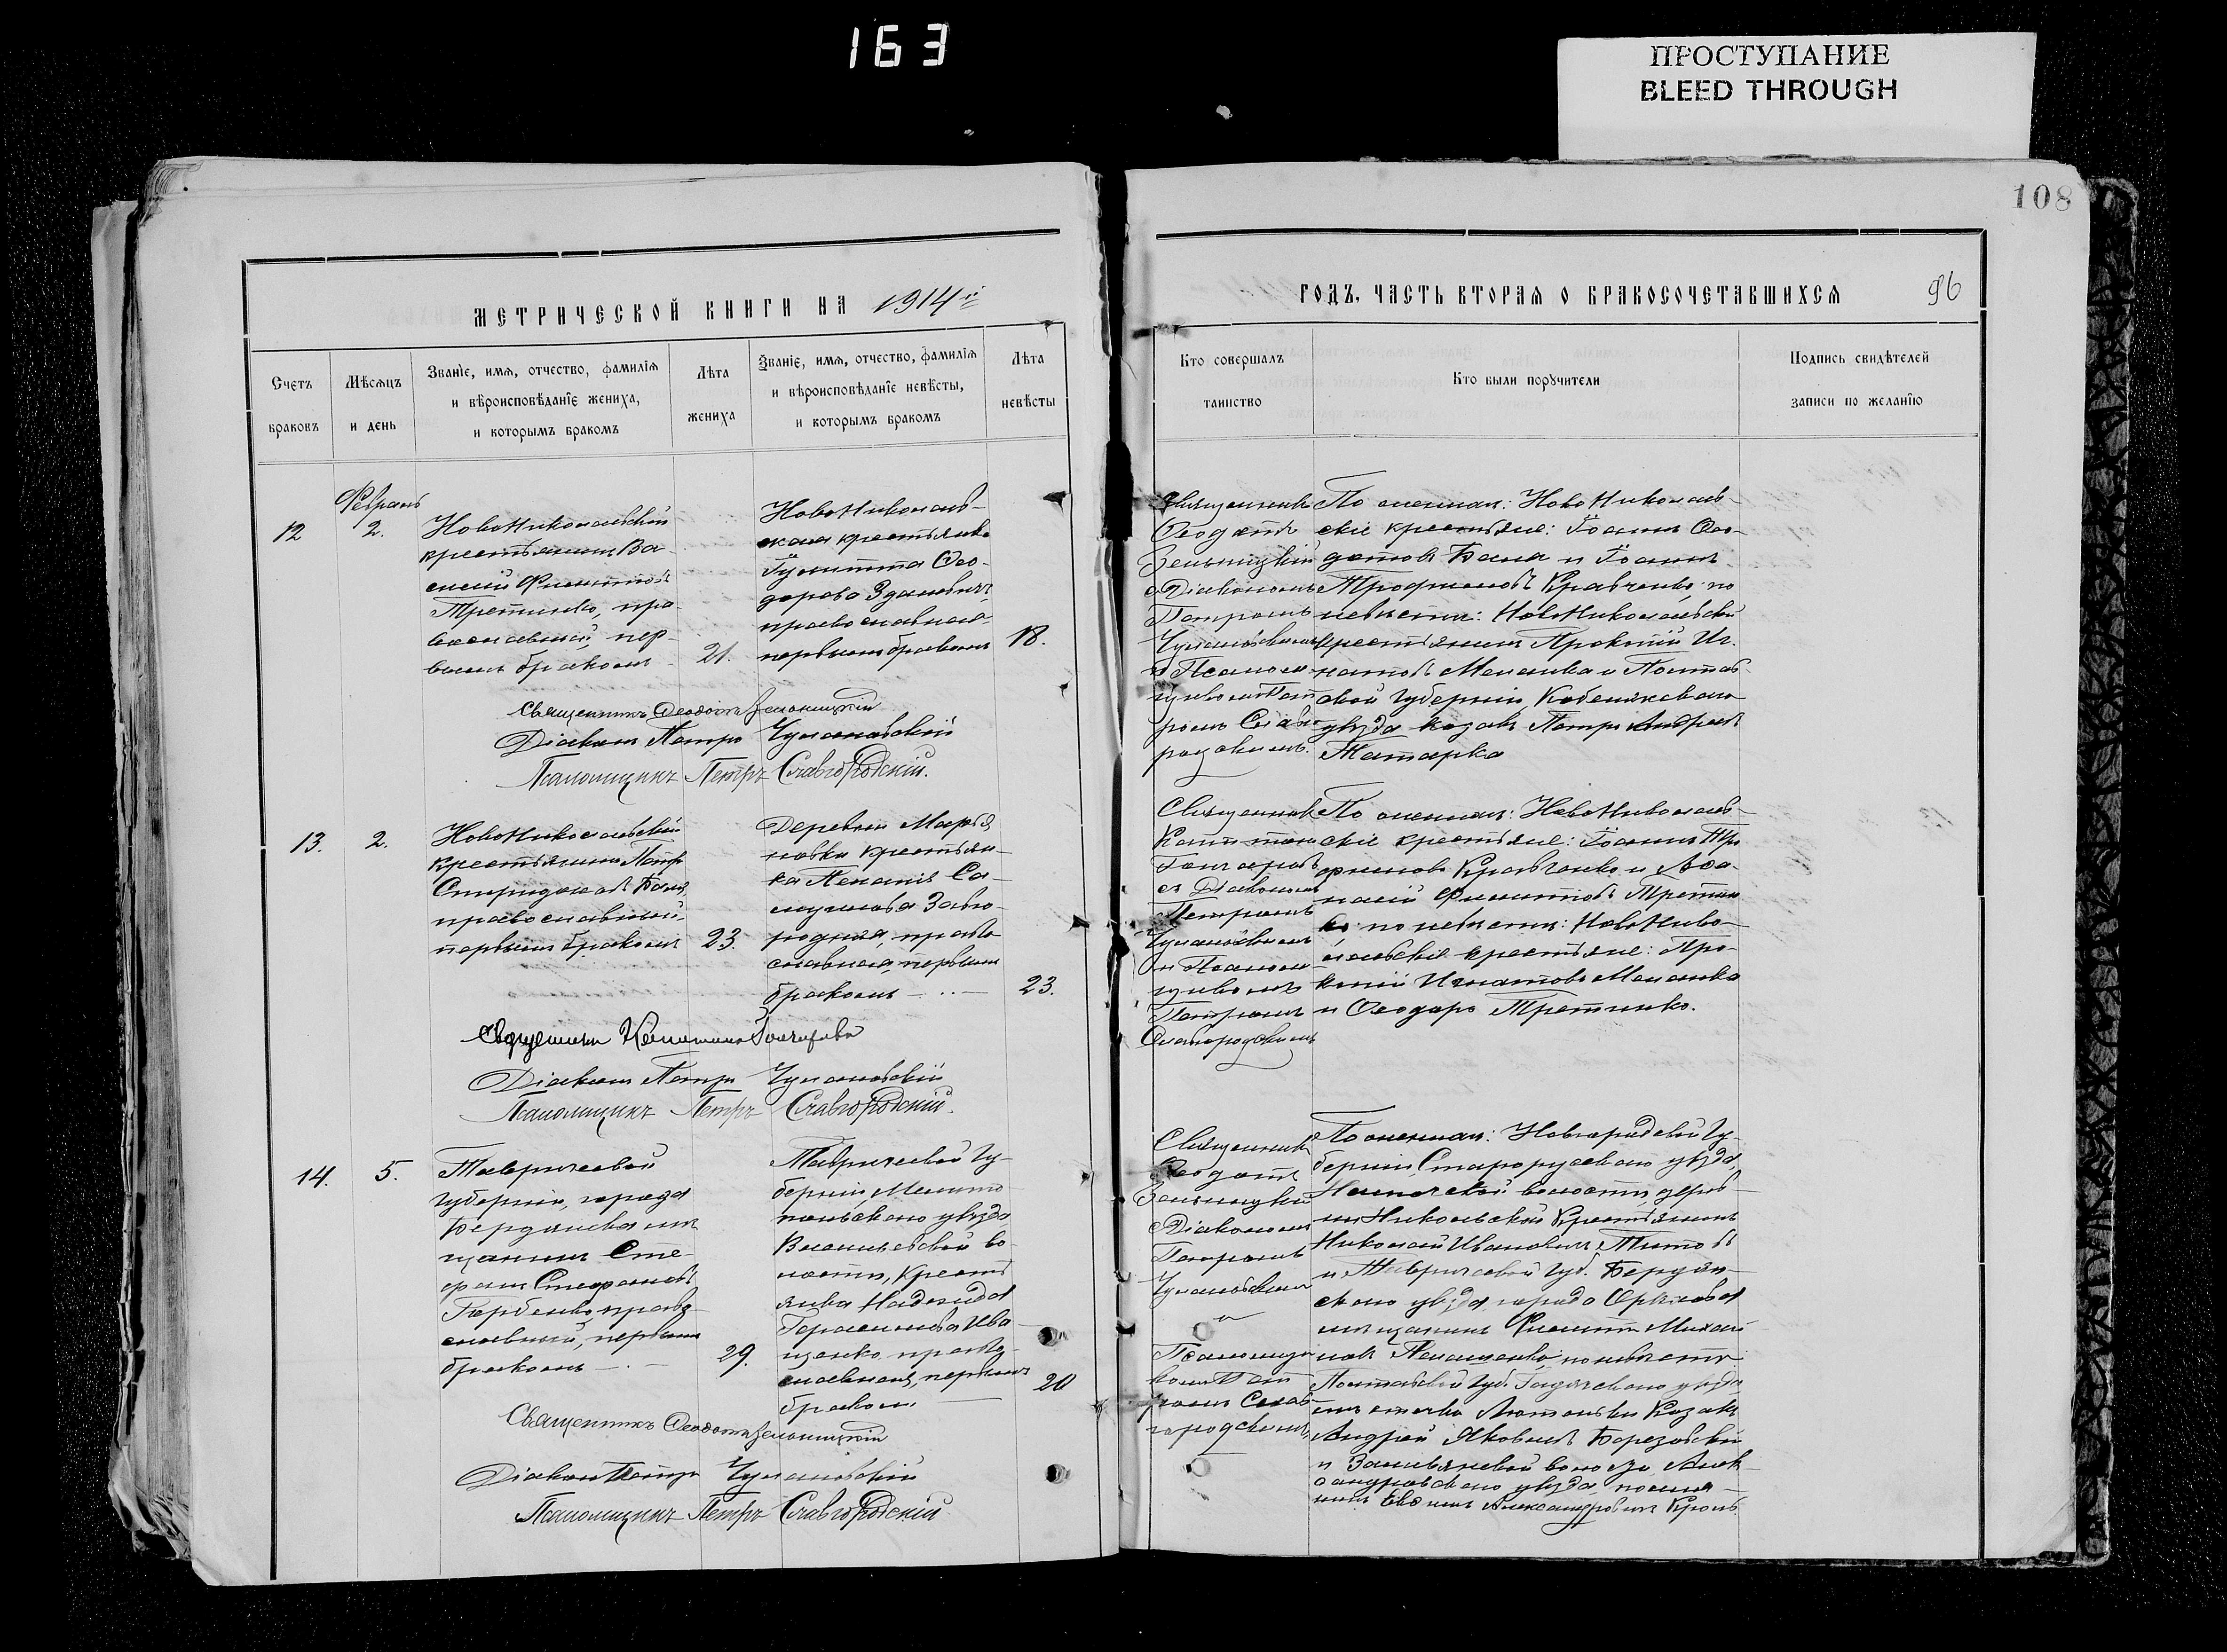 163
ПРОСТУПАНИЕ
BLEED THROUGH
108
МЕТРИЧЕСКОЙ КНИГИ НА 1914й
ГОДЪ, ЧАСТЬ ВТОРАЯ О БРАКОСОЧЕТАВШИХСЯ
96
Счетъ
браковъ
Мѣсяцъ
и день
Званіе, имя, отчество, фамилія
и вѣроисповѣданіе жениха,
и которымъ бракомъ
Лѣта
жениха
Званіе, имя, отчество, фамилія
и вѣроисповѣданіе невѣсты,
и которымъ бракомъ
Лѣта
невѣсты
Кто совершалъ
таинство
Кто были поручители
Подпись свидѣтелей
записи по желанію
12
Февраль
2.
НовоНиколаевскій
крестьянинъ Ва-
силій Филиппов
Третинко, пра-
вославный, пер-
вымъ бракомъ
21.
НовоНиколаев-
ская крестьянка
Іулитта Ѳео-
дорова Здановичъ,
православная
первымъ бракомъ
18.
Священникъ
Ѳеодотъ
Зельницкій
съ Діакономъ
Петромъ
Чулановскимъ
и Псаломщ
комъ Пет
ромъ Славго
родскимъ.
По женихѣ: НовоНиколаев-
скіе крестьяне: Іоаннъ Ѳео-
дотовъ Бала и Іоаннъ
Трофимовъ Кравченко; по
невѣстѣ: НовоНиколаевскій
крестьянинъ Прокопій Иг-
натовъ Меланка и Полтав
ской губерніи, Кобелякскаго
уѣзда козакъ Петръ Андреев
Татарка
Священникъ Ѳеодотъ Зельницкій
Діаконъ Петръ Чулановскій
Псаломщикъ Петръ Славгородскій.
13.
2.
НовоНиколаевскій
крестьянинъ Петръ
Спиридоновъ Бала,
православный,
первымъ бракомъ
23.
Деревни Марья
новки крестьян-
ка Пелагія Са-
муилова Заво-
родняя, право
славная, первымъ
бракомъ
23.
Священникъ
Гончаровъ
съ Діакономъ
Петромъ
Чулановскимъ
и Псалом-
щикомъ
Петромъ
Славгородскимъ
По женихѣ: НовоНиколаев-
скіе крестьяне: Іоаннъ Тро
фимовъ Кравченко и Аѳа-
насій Филипповъ Третин
ко; по невѣстѣ: НовоНико-
лаевскіе крестьяне: Про-
копій Игнатовъ Меланка
и Ѳеодоръ Третинко.
Священникъ Гончаровъ
Діаконъ Петръ Чулановскій
Псаломщикъ Петръ Славгородскій.
14.
5.
Таврической
губерніи, города
Бердянска мѣ
щанинъ Сте-
фанъ Стефановъ
Горбенко, право-
славный, первымъ
бракомъ
29.
Таврической гу-
берніи Мелито
польскаго уѣзда,
Васильевской во-
лости, крест
янка Надежда
Герасимова Ива
щенко, право-
славная, первымъ
бракомъ
20
Священникъ
Ѳеодотъ
Зельницкій
съ Діакономъ
Петромъ
Чулановскимъ
и
Псаломщи
комъ Пет
ромъ Слав
городскимъ,
По женихѣ: Новгородской гу-
берніи, Старорусскаго уѣзда,
волости, дерев-
ни Никольской крестьянинъ
Николай Ивановичъ Титовъ
и Таврической губ. Бердян-
скаго уѣзда города Орѣхова
мѣщанинъ Филиппъ Михай
ловъ; по невѣстѣ
Полтавской губ. Гадячскаго уѣзда
мѣстечка Лютеньки козакъ
Андрей Яковлевъ Березовскій
и Алек-
сандровскаго уѣзда поселя-
нинъ Евфимъ Александровичъ Кроль.
Священникъ Ѳеодотъ Зельницкій
Діаконъ Петръ Чулановскій
Псаломщикъ Петръ Славгородскій